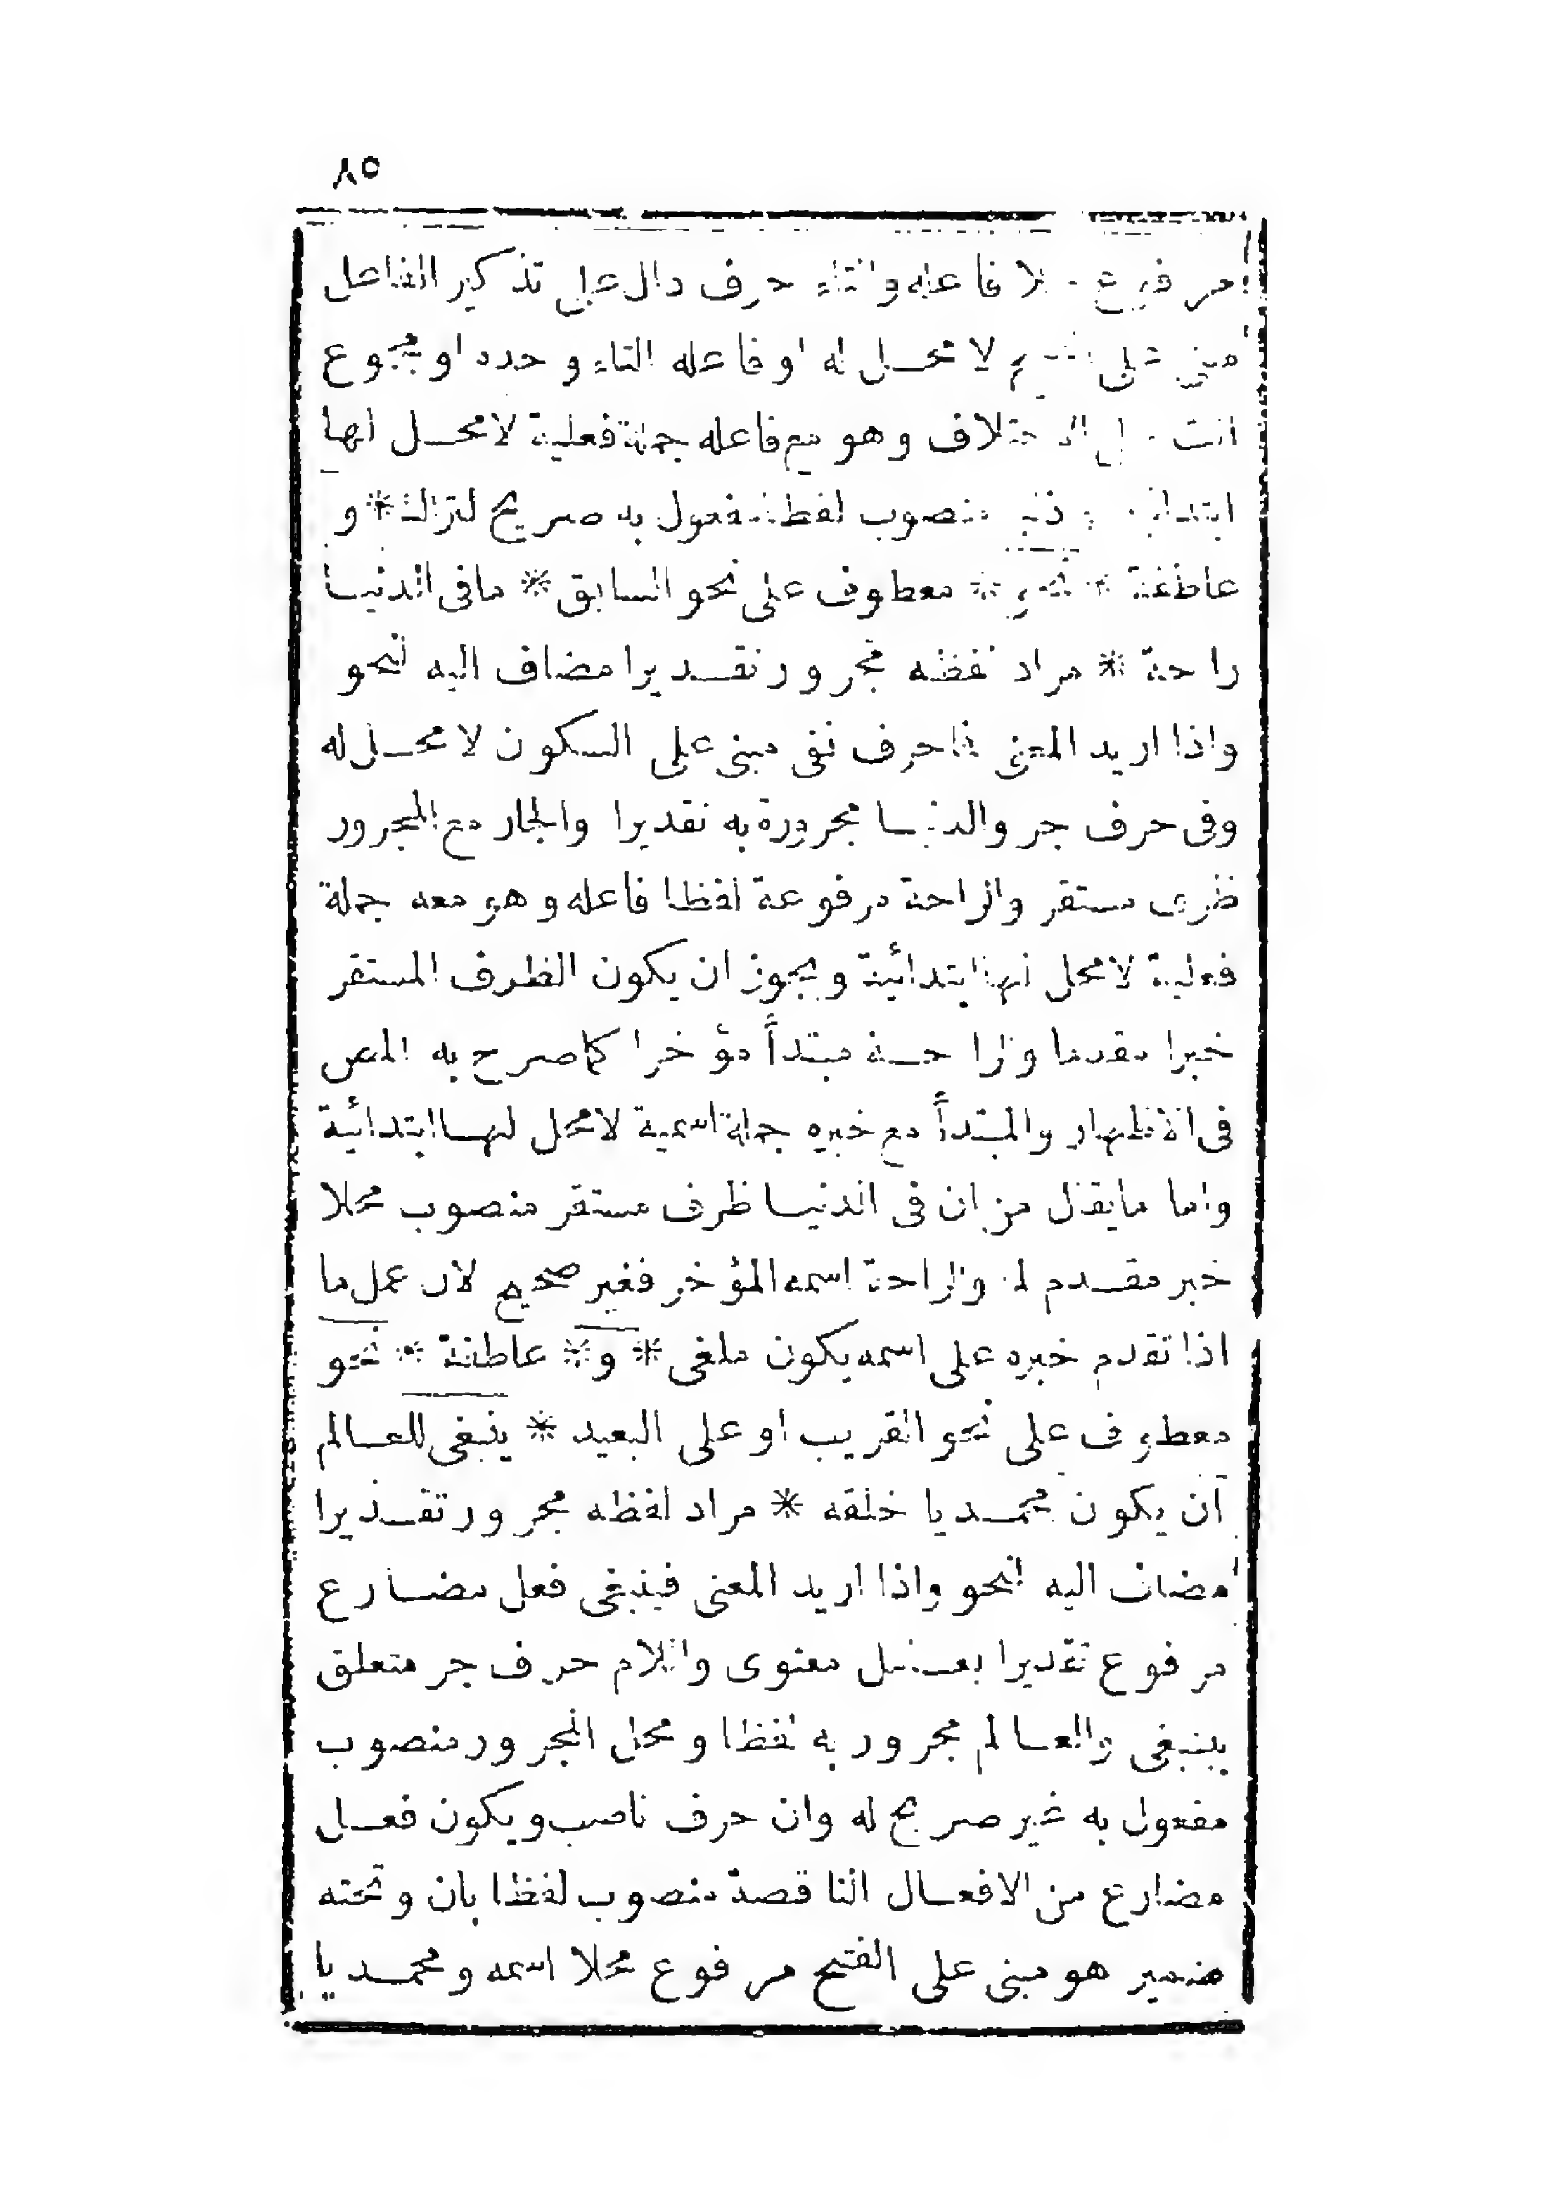 ٨٥
مرفوع محلا فاعله والتاء حرف دال على تذكير الفاعل
مبنى على الفتح لا محل له او فاعله التاء وحده او مجموع
انت على الاختلاف وهو مع فاعله جملة فعلية لا محل لها
ابتدائية منصوب لفظا مفعول به صريح لتراك * و
عاطفة * نحو * معطوف على نحو السابق * ما فى الدنيا
راحة * مراد لفظه مجرور تقديرا مضاف اليه لنحو
واذا اريد المعنى فما حرف نفى مبنى على السكون لا محل له
وفى حرف جر والدنيا مجرورة به تقديرا والجار مع المجرور
ظرف مستقر والراحة مرفوعة لفظا فاعله وهو معه جملة
فعلية لا محل لها ابتدائية ويجوز ان يكون الظرف المستقر
خبرا مقدما والراحة مبتدأ مؤخرا كما صرح به المص
فى الاظهار والمبتدأ مع خبره جملة اسمية لا محل لها ابتدائية
واما ما يقال من ان فى الدنيا ظرف مستقر منصوب محلا
خبر مقدم لما والراحة اسمه المؤخر فغير صحيح لان عمل ما
اذا تقدم خبره على اسمه يكون ملغى * و * عاطفة * نحو
معطوف على نحو القريب او على البعيد * ينبغى للعالم
ان يكون محمديا خلقه * مراد لفظه مجرور تقديرا
مضاف اليه لنحو واذا اريد المعنى فينبغى فعل مضارع
مرفوع تقديرا بعامل معنوى واللام حرف جر متعلق
بينبغى والعالم مجرور به لفظا ومحل المجرور منصوب
مفعول به غير صريح له وان حرف ناصب ويكون فعل
مضارع من الافعال الناقصة منصوب لفظا بان وتحته
ضمير هو مبنى على الفتح مرفوع محلا اسمه ومحمديا